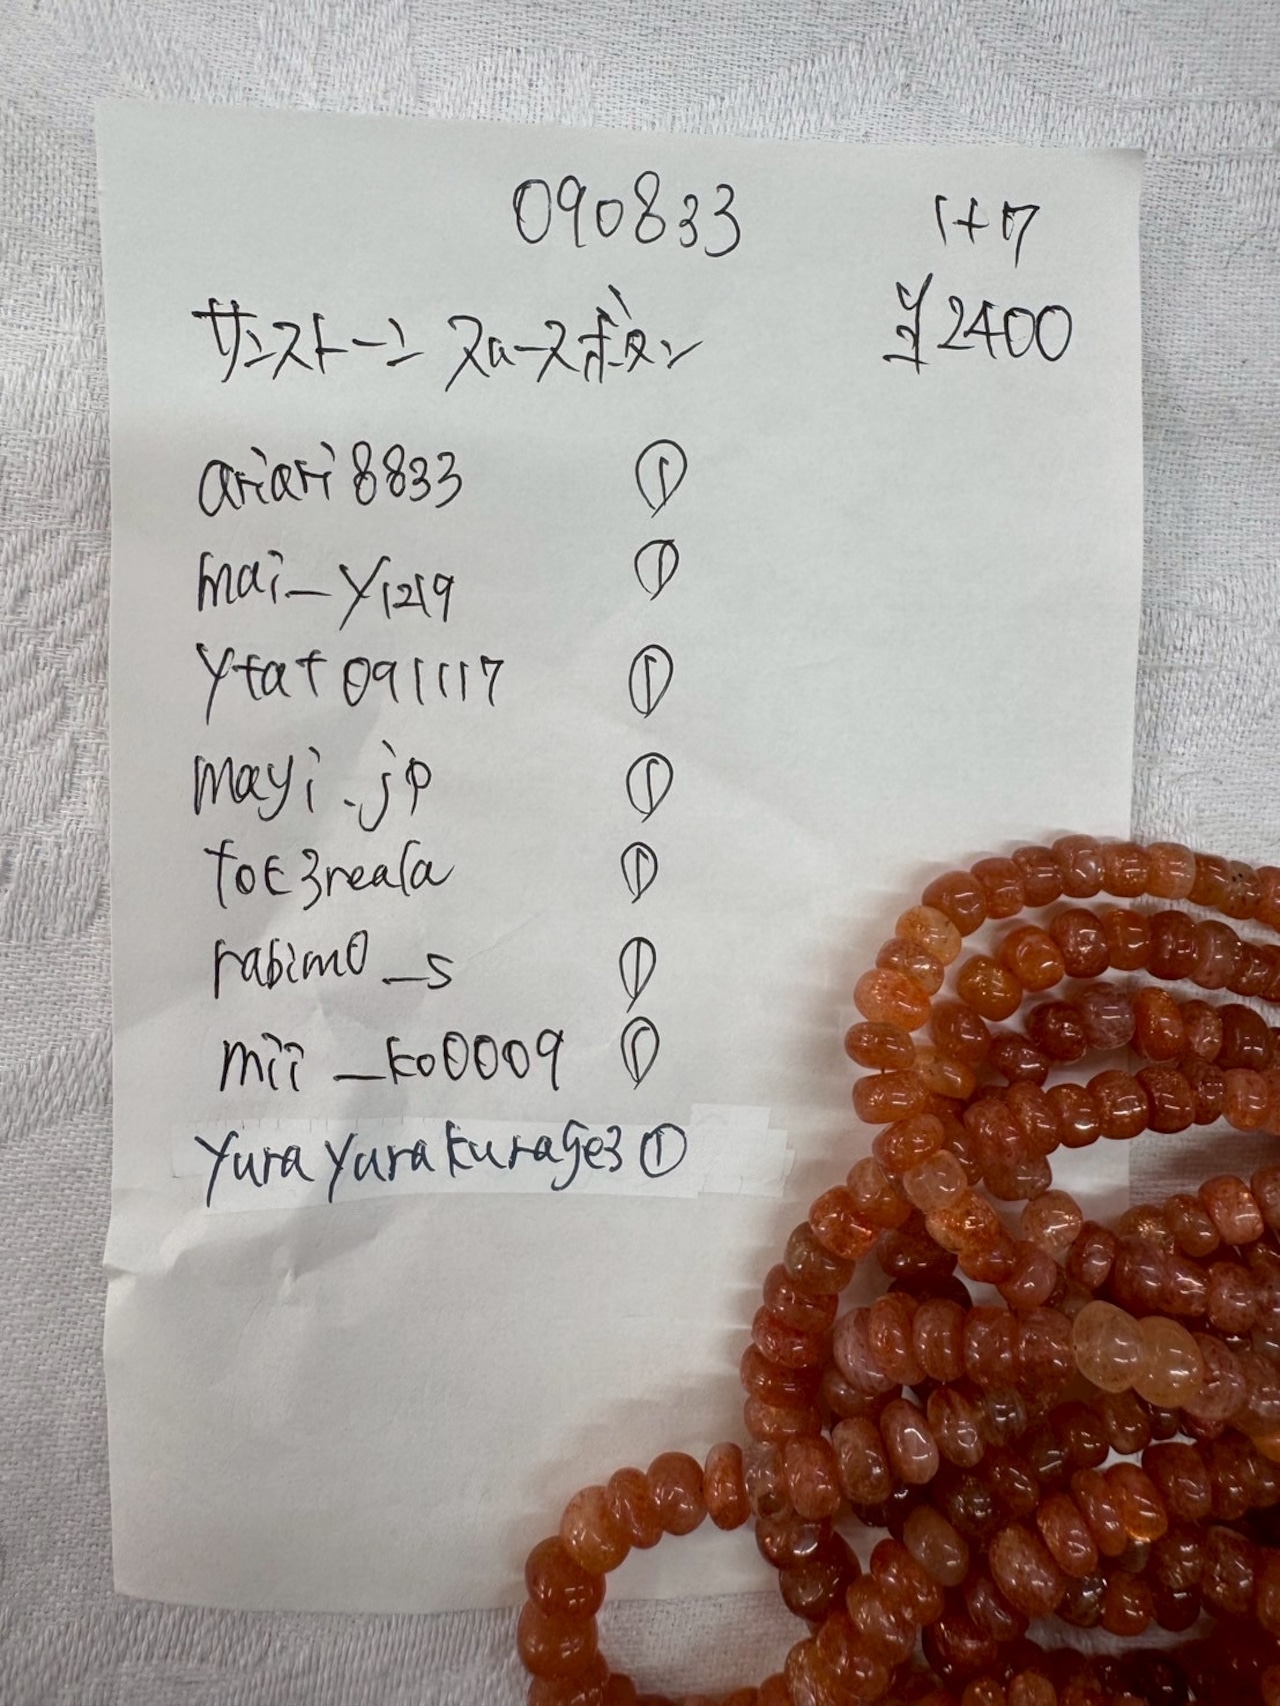 090833
1+7
サンストーン スムースボタン
¥2400
ariari8833 ①
mai_y1219 ①
ytat091117 ①
mayi.jp ①
tot3reala ①
rabim0_s ①
mii_ko0009 ①
yurayurakurage3 ①